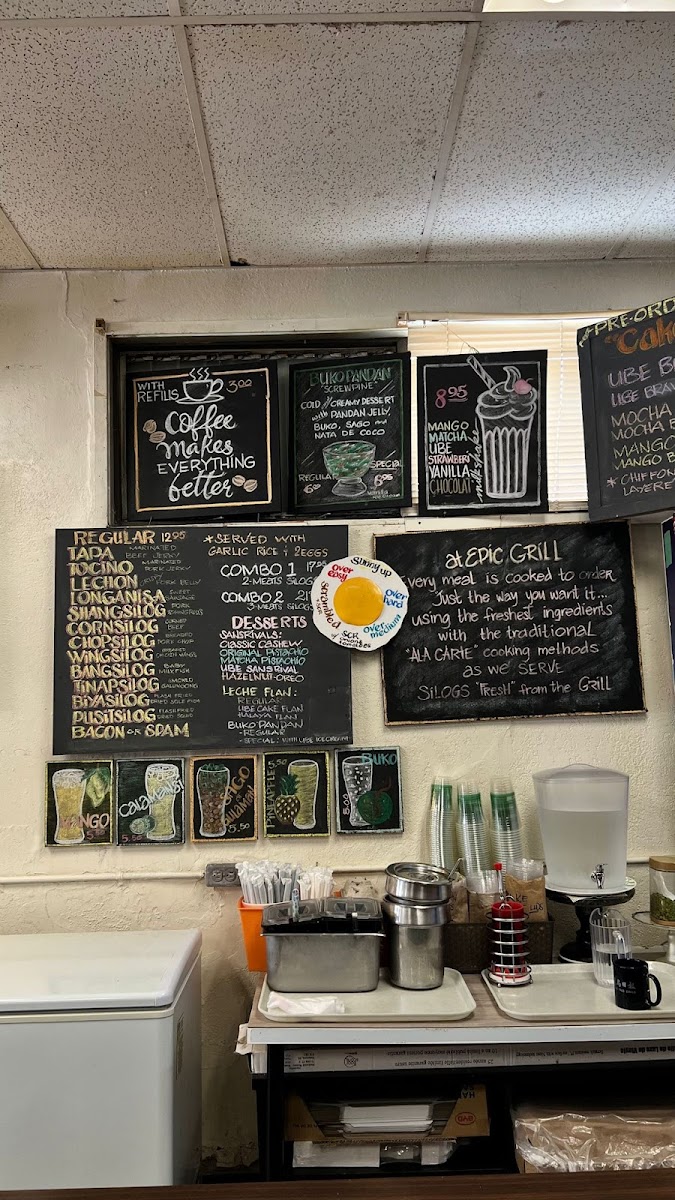 WITH REFILLS 3.00
Coffee
makes
EVERYTHING
better
BUKO PANDAN
"SCREWPINE"
COLD & CREAMY DESSERT
with PANDAN JELLY,
BUKO, SAGO and
NATA DE COCO
REGULAR
6.95
SPECIAL
8.95
MANGO
MATCHA
UBE
STRAWBERI
VANILLA
CHOCOLAT
milkshake
PRE-ORD
"Cake
UBE B
UBE BRA
MOCHA
MOCHA B
MANGO
MANGO B
* CHIFFON
LAYERE
REGULAR 12.95
TAPA MARINATED BEEF JERKY
TOCINO MARINATED PORK JERKY
LECHON CRISPY PORK BELLY
LONGANISA SWEET SAUSAGE
SHANGSILOG PORK
CORNSILOG CORNED BEEF
CHOPSILOG BREADED PORK CHOP
WINGSILOG BREADED CHICKEN WINGS
BANGSILOG BABY MILKFISH
TINAPSILOG SMOKED
BIYASILOG FLASH FRIED
PUSITSILOG FLASH FRIED DRIED SQUID
BACON or SPAM
*SERVED WITH
GARLIC RICE & 2 EGGS
COMBO 1
2-MEATS SILOG
COMBO 2
3-MEATS SILOG
DESSERTS
SANSRIVALS:
CLASSIC CASHEW
ORIGINAL PISTACHIO
MATCHA PISTACHIO
UBE SANSRIVAL
HAZELNUT-OREO
LECHE FLAN:
REGULAR
UBE CAKE FLAN
HALAYA FLAN
BUKO PANDAN
-REGULAR
-SPECIAL: WITH UBE ICECREAM
Sunny up
over easy
over hard
scrambled
over medium
SCR
w/ onions
tomatoes
at EPIC GRILL
every meal is cooked to order
Just the way you want it...
using the freshest ingredients
with the traditional
"ALA CARTE" cooking methods
as we SERVE
SILOGS "FRESH" from the Grill
MANGO
5.50
CALAMANSI
5.50
SAGO
GULAMAN
5.50
PINEAPPLE
5.50
BUKO
5.00